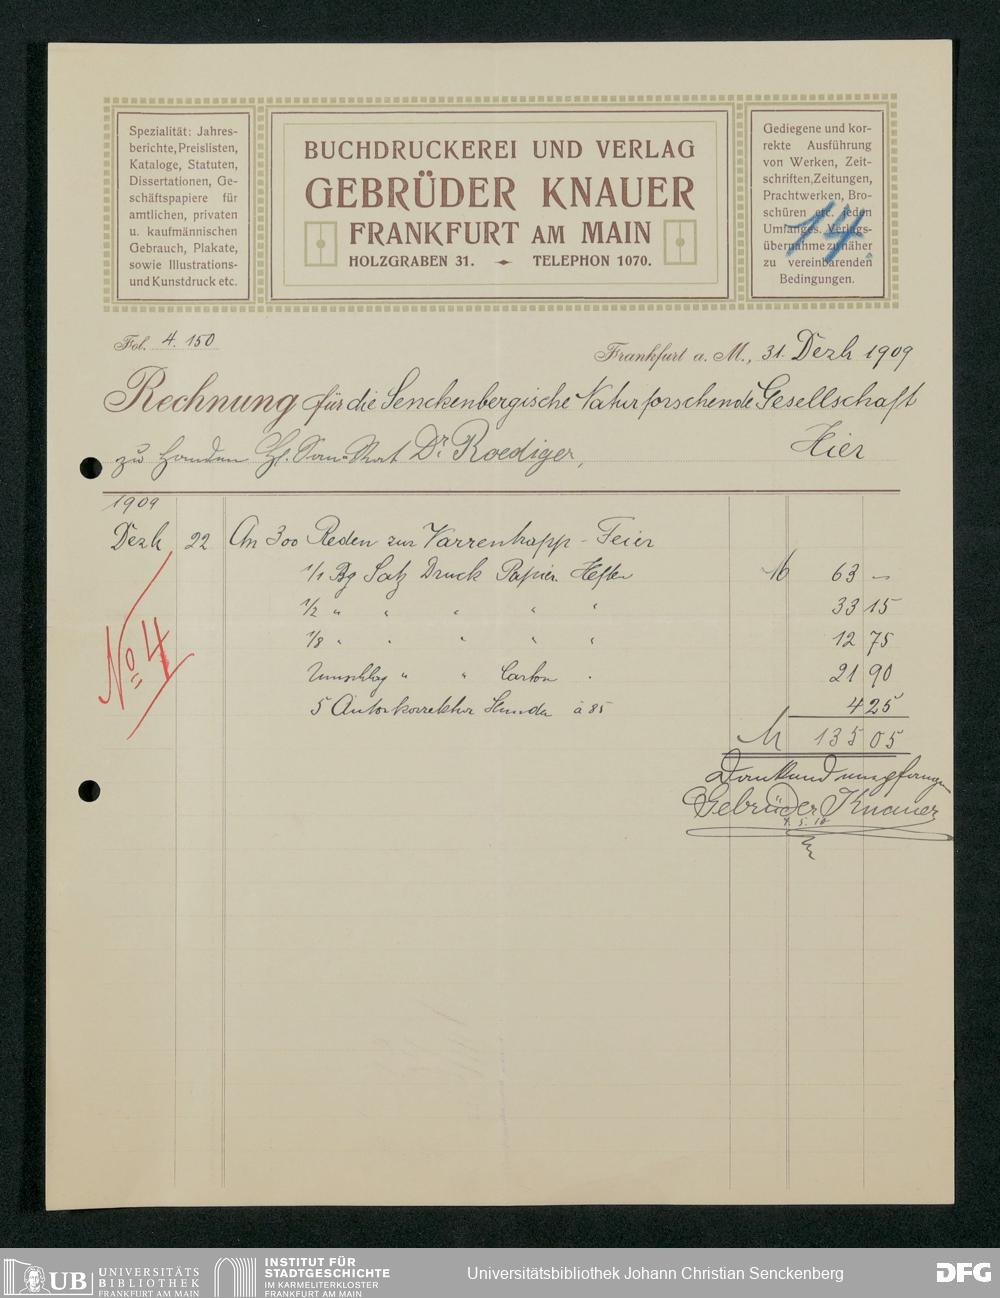 Spezialität: Jahres-
berichte, Preislisten,
Kataloge, Statuten,
Dissertationen, Ge-
schäftspapiere für
amtlichen, privaten
u. kaufmännischen
Gebrauch, Plakate,
sowie Illustrations-
und Kunstdruck etc.
BUCHDRUCKEREI UND VERLAG
GEBRÜDER KNAUER
FRANKFURT AM MAIN
HOLZGRABEN 31. TELEPHON 1070.
Gediegene und kor-
rekte Ausführung
von Werken, Zeit-
schriften, Zeitungen,
Prachtwerken, Bro-
schüren etc. jeden
Umfanges. Verlags-
übernahme zu näher
zu vereinbarenden
Bedingungen.
14.
Fol. 4. 150
Frankfurt a. M., 31. Dezb 1909
Rechnung für die Senckenbergische Naturforschende Gesellschaft
zu Handen H. San. Rat Dr. Roediger, Hier
1909
Dezb 22 An 300 Reden zur Varrentrapp-Feier
1/1 Bg Satz Druck Papier Heften M 63 –
1/2 " " " " " 33 15
1/8 " " " " " 12 75
Umschlag " " Carton 21 90
5 Autorkorrektur Stunden à 85 4 25
M 135 05
No 4
Dankend empfangen
Gebrüder Knauer
4. 5. 10
UB UNIVERSITÄTS
BIBLIOTHEK
FRANKFURT AM MAIN
INSTITUT FÜR
STADTGESCHICHTE
IM KARMELITERKLOSTER
FRANKFURT AM MAIN
Universitätsbibliothek Johann Christian Senckenberg
DFG